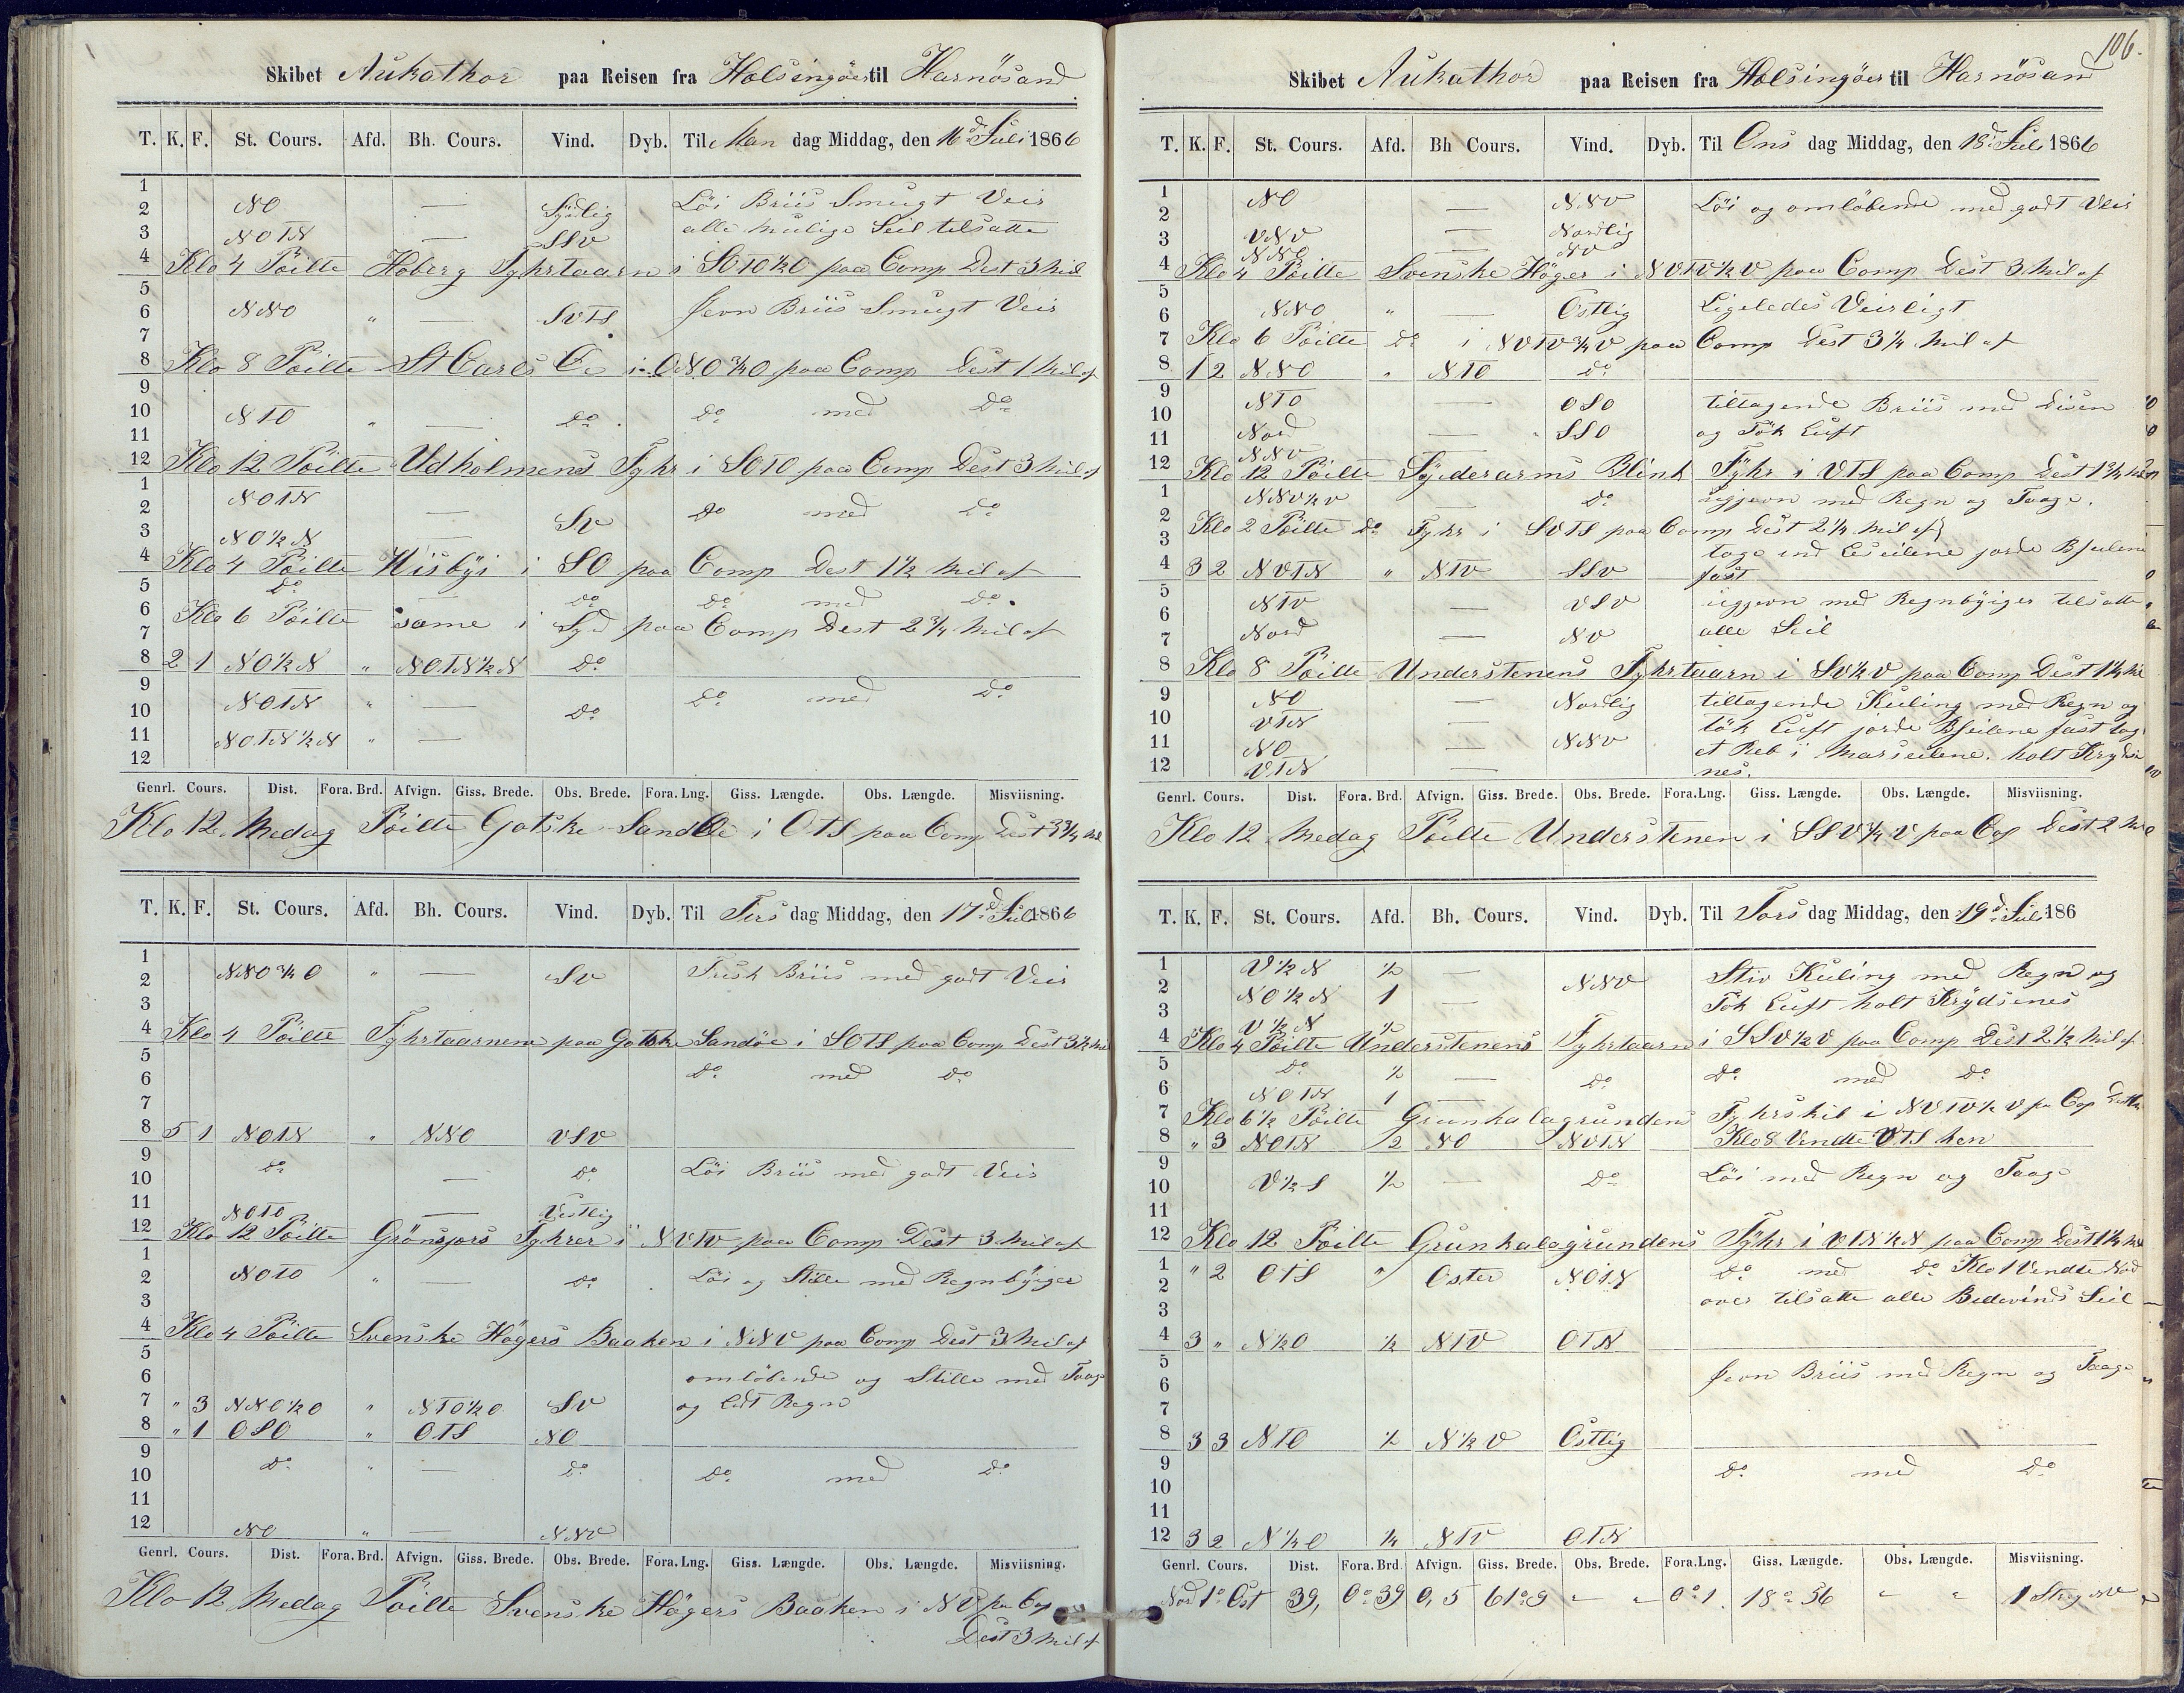 Skibet Aukathor paa Reisen fra Holsingöer til Harnösand
T. K. F. St. Cours. Afd. Bh. Cours. Vind. Dyb. Til Man dag Middag, den 16d Juli 1866
1
2 NO — Sydlig Löi Briis Smugt Veir
3 NOTN — SSV alle mulige Seil tilsatte
4 Klo 4 Pöilte Hoberg Fyhrtaarn i SOTO½O paa Comp Dest 3 Mil af
5
6 NNO " — SVTS Jevn Briis Smugt Veir
7
8 Klo 8 Pöilte St Carls Öe i ONO¾O paa Comp Dest 1 Mil af
9
10 NTO " — Do Do med Do
11
12 Klo 12 Pöilte Udholmens Fyhr i SOTO paa Comp Dest 3 Mil af
1 NOTN
2 — SV Do med Do
3 NO½N —
4 Klo 4 Pöilte Wisbÿi i SO paa Comp Dest 1½ Mil af
5 Do — Do Do med Do
6 Klo 6 Pöilte same i Syd paa Comp Dest 2¾ Mil af
7
8 2 1 NO½N " NOTN½N Do
9 NOTN " — Do med Do
10 Do
11 NOTN½N " —
12
Genrl. Cours. Dist. Fora. Brd. Afvign. Giss. Brede. Obs. Brede. Fora. Lng. Giss. Længde. Obs. Længde. Misviisning.
Klo 12 Medag Pöilte Gotske SandÖe i OTS paa Comp Dest 3¾ Mil
T. K. F. St. Cours. Afd. Bh. Cours. Vind. Dyb. Til Tirs dag Middag, den 17d Juli 1866
1
2 NNO¾O " — SV Frisk Briis med godt Veir
3
4 Klo 4 Pöilte Fyhrtaarnene paa Gotske Sandöe i SOTS paa Comp Dest 3½ Mil
5
6 Do med Do
7
8 5 1 NOTN " NNO VSV
9 Do — Do Löi Briis med godt Veir
10
11 NOTO — Vestlig
12 Klo 12 Pöilte Grönsjors Fyhrer i NVTV paa Comp Dest 3 Mil af
1
2 NOTO " — Do Löi og Stille med Regnbÿiger
3
4 Klo 4 Pöilte Svenske Högers Baaken i NNV paa Comp Dest 3 Mil af
5
6 omlöbende og Stille med Taage
7 " 3 NNO½O " NTO½O SV og lidt Regn
8 " 1 OSO " OTS NO
9
10 Do " — Do Do med Do
11
12 NO " — NNV
Genrl. Cours. Dist. Fora. Brd. Afvign. Giss. Brede. Obs. Brede. Fora. Lng. Giss. Længde. Obs. Længde. Misviisning.
Klo 12 Medag Pöilte Svenske Högers Baaken i NV paa Cop
Dest 3 Mil af
106.
Skibet Aukathor paa Reisen fra Holsingöer til Harnösand
T. K. F. St. Cours. Afd. Bh Cours. Vind. Dyb. Til Ons dag Middag, den 18d Juli 1866
1 NO — NNV Löi og omlöbende med godt Veir
2
3 VNV — Nordlig
NNO — NV
4 Klo 4 Pöilte Svenske Höger i NVTV½V paa Comp Dest 3 Mil af
5
6 NNO " — Östlig Ligeledes Veirligt
7 Klo 6 Pöilte do i NVTV¾V paa Comp Dest 3¼ Mil af
8 1 2 NNO " NTO Do
9 NTO — OSO tiltagende Briis med Disen
10
11 Nord — SSO og Tök Luft
NNV
12 Klo 12 Pöilte Syderarms Blink Fÿhr i VTS paa Comp Dest 1¾ Mil
1 NNV½V — Do ugjevn med Regn og Taage.
2 Klo 2 Pöilte Do Fyhr i SVTS paa Comp Dest 2¼ Mil af
3 toge ind Leseilene jorde Bseilene
4 3 2 NVTN " NTV SSV fast
5
6 NTV — VSV ugjevn med Regnbÿiger tilsatte
7 Nord — NV alle Seil
8 Klo 8 Pöilte Understenens Fyhrtaarn i SV½V paa Comp Dest 1¼ Mil
9 NO — Nordlig tiltagende Kuling med Regn og
10 VTN — tök Luft jorde Bseilene fast tog
11 NO — NNV et Reb i Marseilene. holt Krydsi
12 VTN — nes.
Genrl. Cours. Dist. Fora. Brd. Afvign. Giss. Brede. Obs. Brede. Fora.Lng. Giss. Længde. Obs. Længde. Misviisning.
Klo 12 Medag Pöilte Understenen i SSV¾V paa Cop Dest 2 Mil
T. K. F. St. Cours. Afd. Bh. Cours. Vind. Dyb. Til Tors dag Middag, den 19d Juli 186
1 V½N ½ — Stiv Kuling med Regn og
2 NO½N 1 — NNV Tök Luft holt Krÿdsenes
3 V½N ½
4 Klo 4 Pöilte Understenens Fyhrtaarn i SSV½V paa Comp Dest 2½ Mil af
5 Do ½ — Do Do med Do
6 NOTN 1 —
7 Klo 6½ Pöilte Grunkalagrundens Fyhrskib i NVTV½V pa Cop
8 " 3 NOTN ½ NO NVTN Klo 8 Vendte VTS hen
9
10 V½S ½ — Do Löi med Regn og Taage
11
12 Klo 12 Pöilte Grunkalagrundens Fÿhr i VTN½N paa Comp Dest 1¼ Mil
1 " 2 OTS " Oster NOTN Do med Do Klo 1 Vendte Nord
2 over tilsatte alle Bidevinds Seil
3
4 3 " N½O ½ NTV OTN
5
6 Jevn Briis med Regn og Taage
7
8 3 3 NTO ½ N½V Östlig
9 Do med Do
10
11
12 3 2 N¼O ¼ NTV OTN
Genrl. Cours. Dist. Fora. Brd. Afvign. Giss. Brede. Obs. Brede. Fora.Lng. Giss. Længde. Obs. Længde. Misviisning.
Nord 1° Ost 39, 0°39 0,5 61°9 " " 0°1. 18°56 " " 1 Streg NV